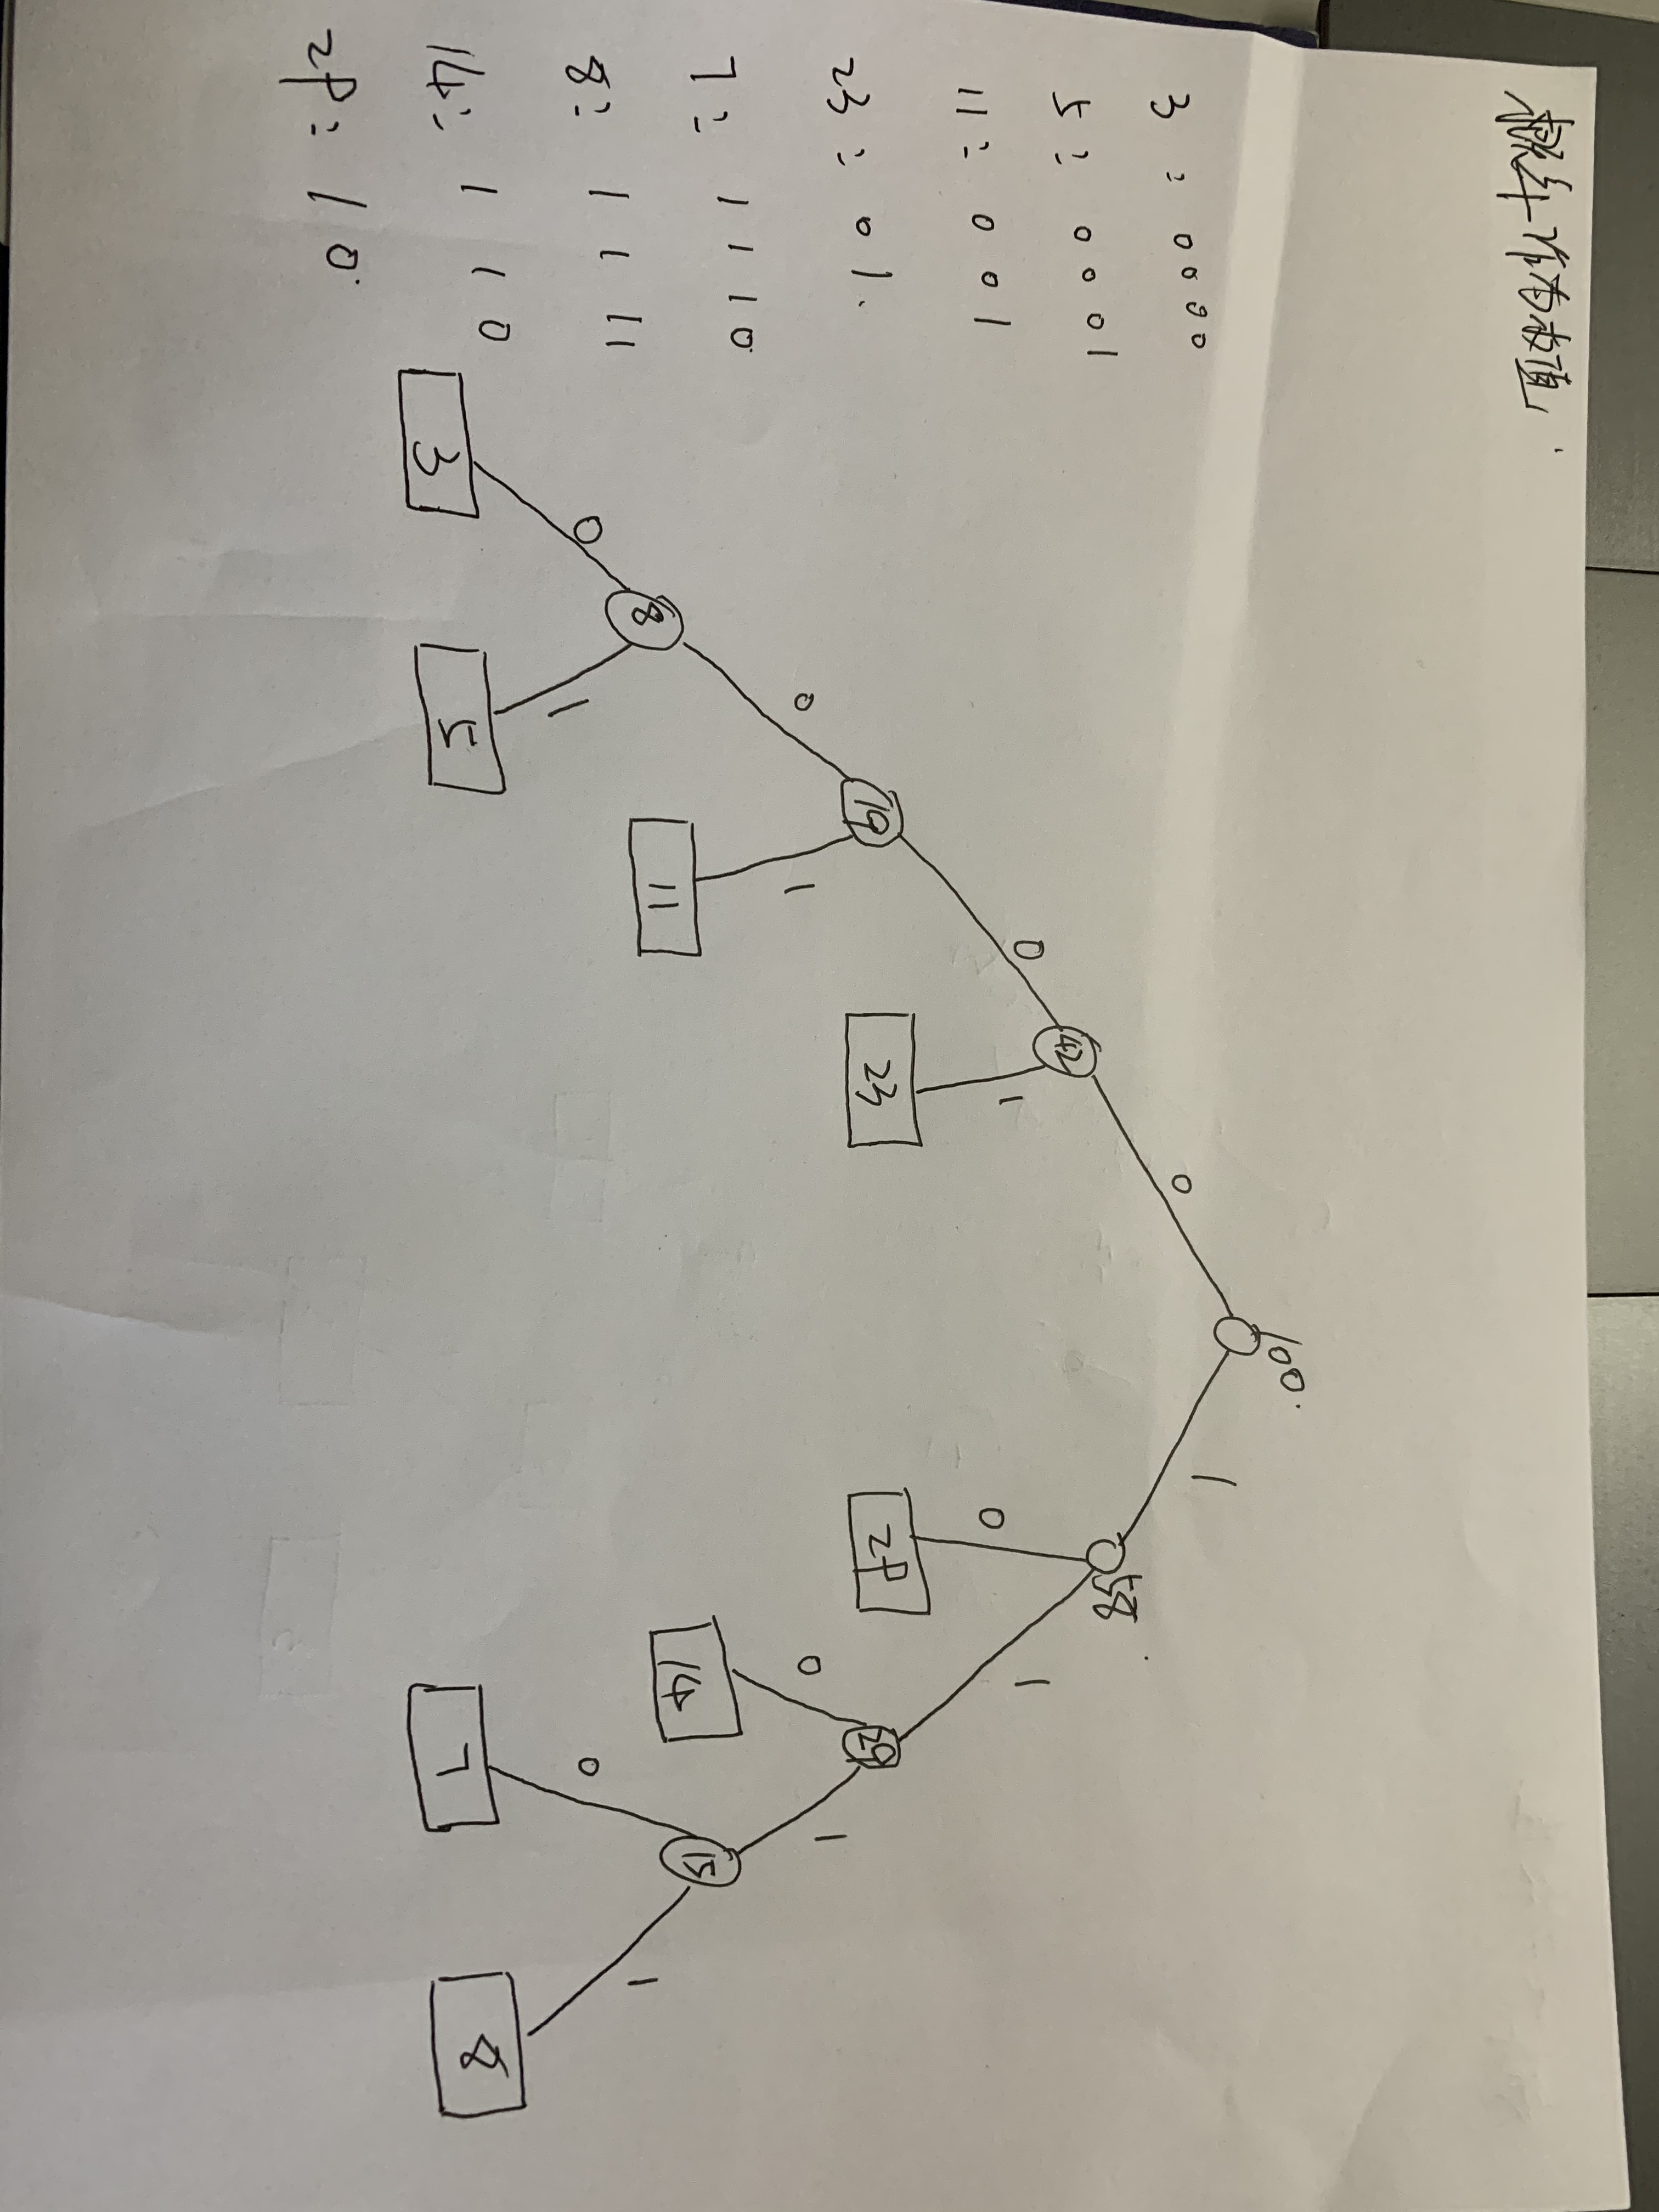 概率作为权值
3 : 0000
5 : 0001
11 : 001
23 : 01.
7 : 1110
8 : 1111
14 : 110
29 : 10
100.
0 1
42 58
0 1 0 1
19 23 29 29
0 1 0 1
8 11 14 15
0 1 0 1
3 5 7 8